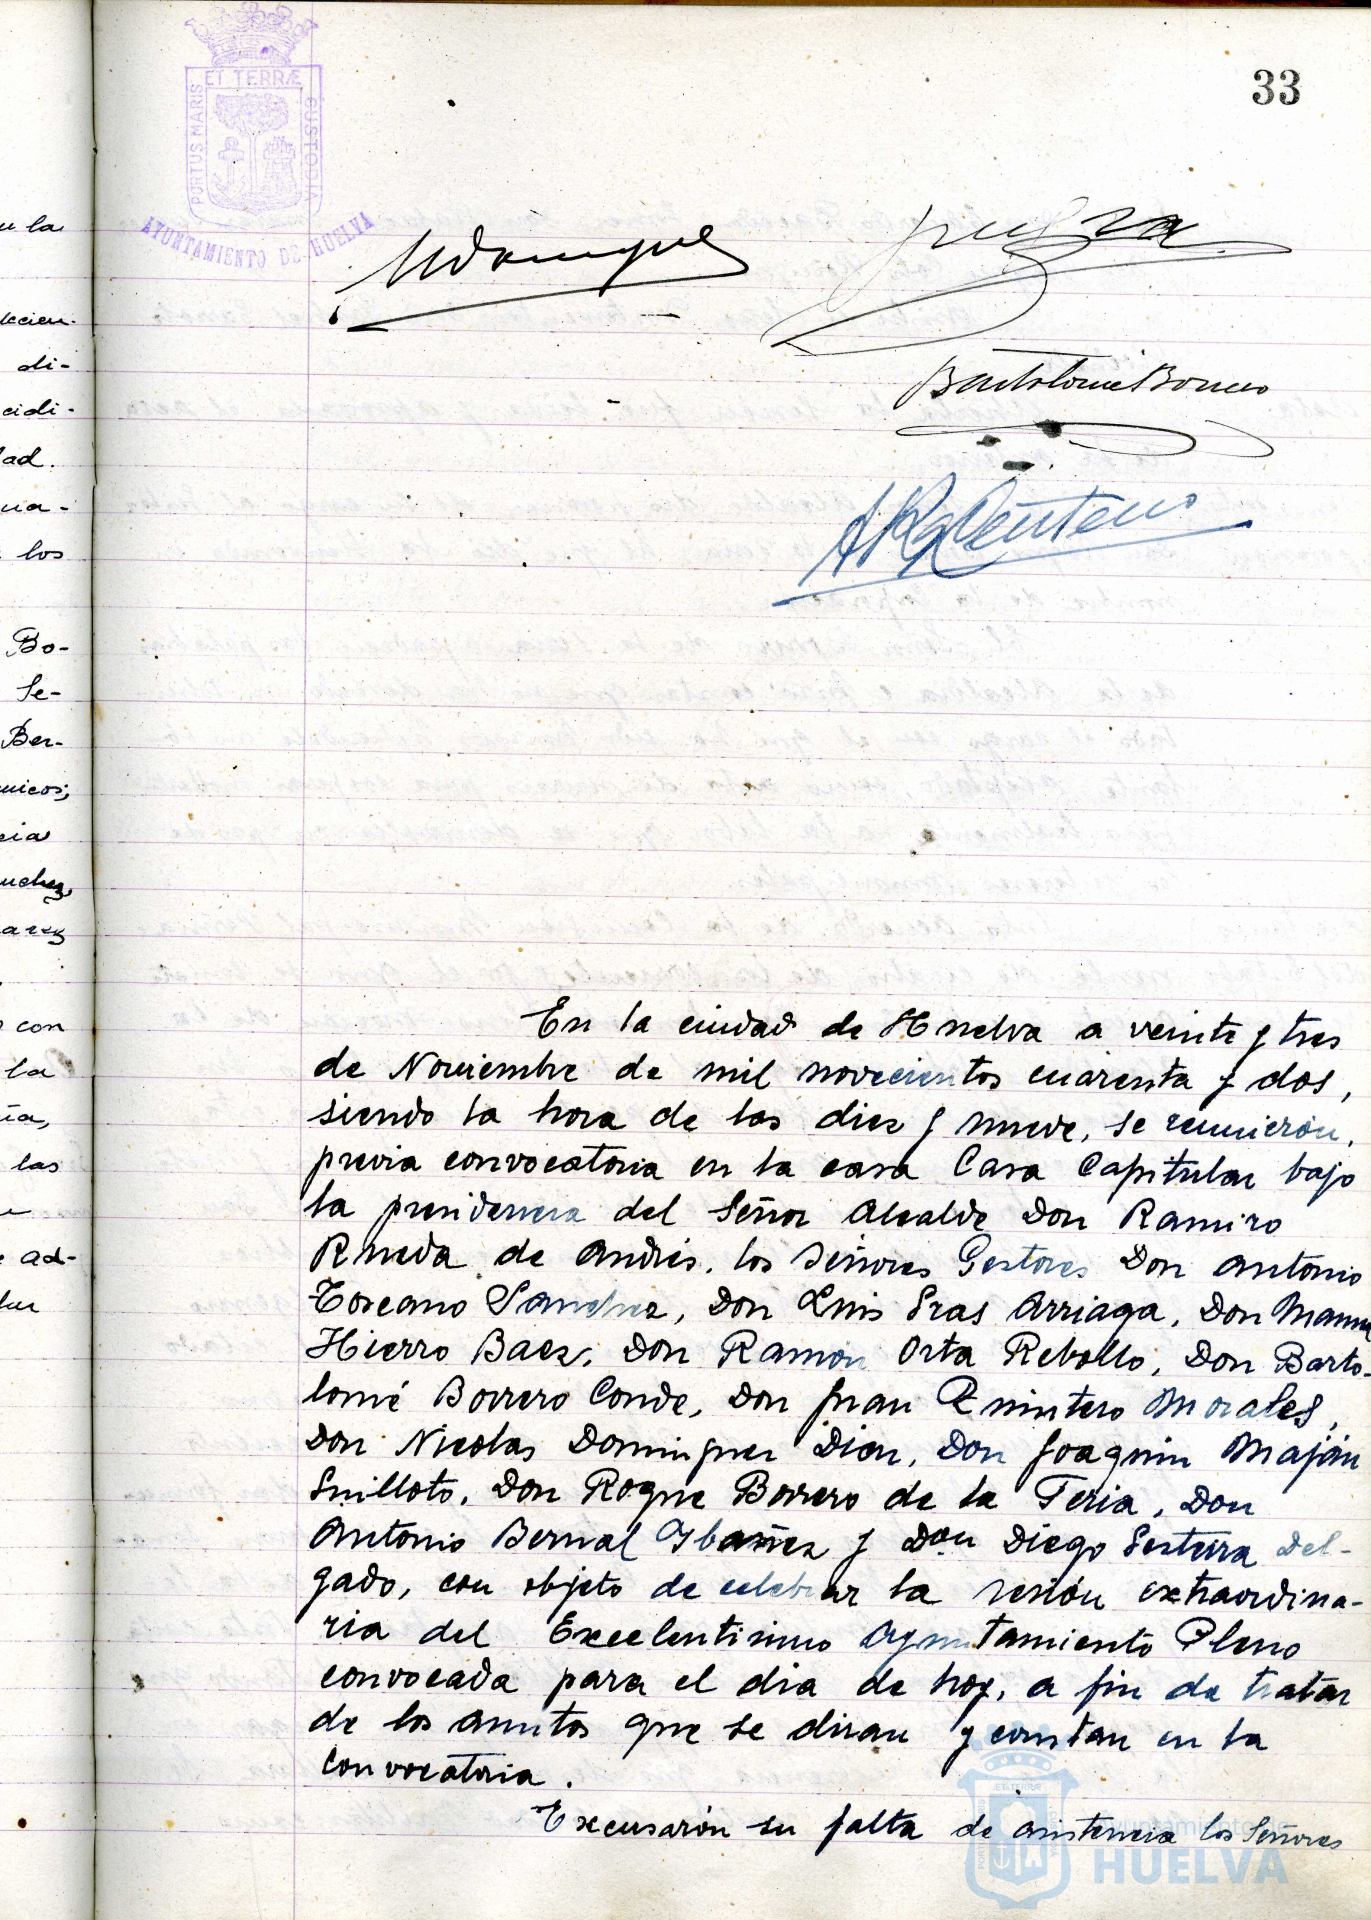 33
ET TERRÆ
PORTUS MARIS
CUSTODIA
AYUNTAMIENTO DE HUELVA
Bartolomé Borrero
En la ciudad de Huelva a veinte y tres
de Noviembre de mil novecientos cuarenta y dos,
siendo la hora de las diez y nueve, se reunieron,
previa convocatoria en la casa Casa Capitular bajo
la presidencia del Señor Alcalde Don Ramiro
Rueda de Andrés, los Señores Gestores Don Antonio
Toscano Sanchez, Don Luis Gras Arriaga, Don Manuel
Hierro Baez, Don Ramón Orta Rebollo, Don Barto-
lomé Borrero Conde, Don Juan Quintero Morales,
Don Nicolas Dominguez Diaz, Don Joaquin Maján
Guilloto, Don Roque Borrero de la Feria, Don
Antonio Bernal Ybañez y Don Diego Sesteira Del-
gado, con objeto de celebrar la sesión extraordina-
ria del Excelentisimo Ayuntamiento Pleno
convocada para el dia de hoy, a fin de tratar
de los asuntos que se diran y constan en la
convocatoria.
Excusarón su falta de asistencia los Señores
u la
di-
cidi-
dad.
ua-
los
Bo-
Se-
Ber-
micos;
cia
arez
con
la
ia,
las
ad-
Ayuntamiento de
HUELVA